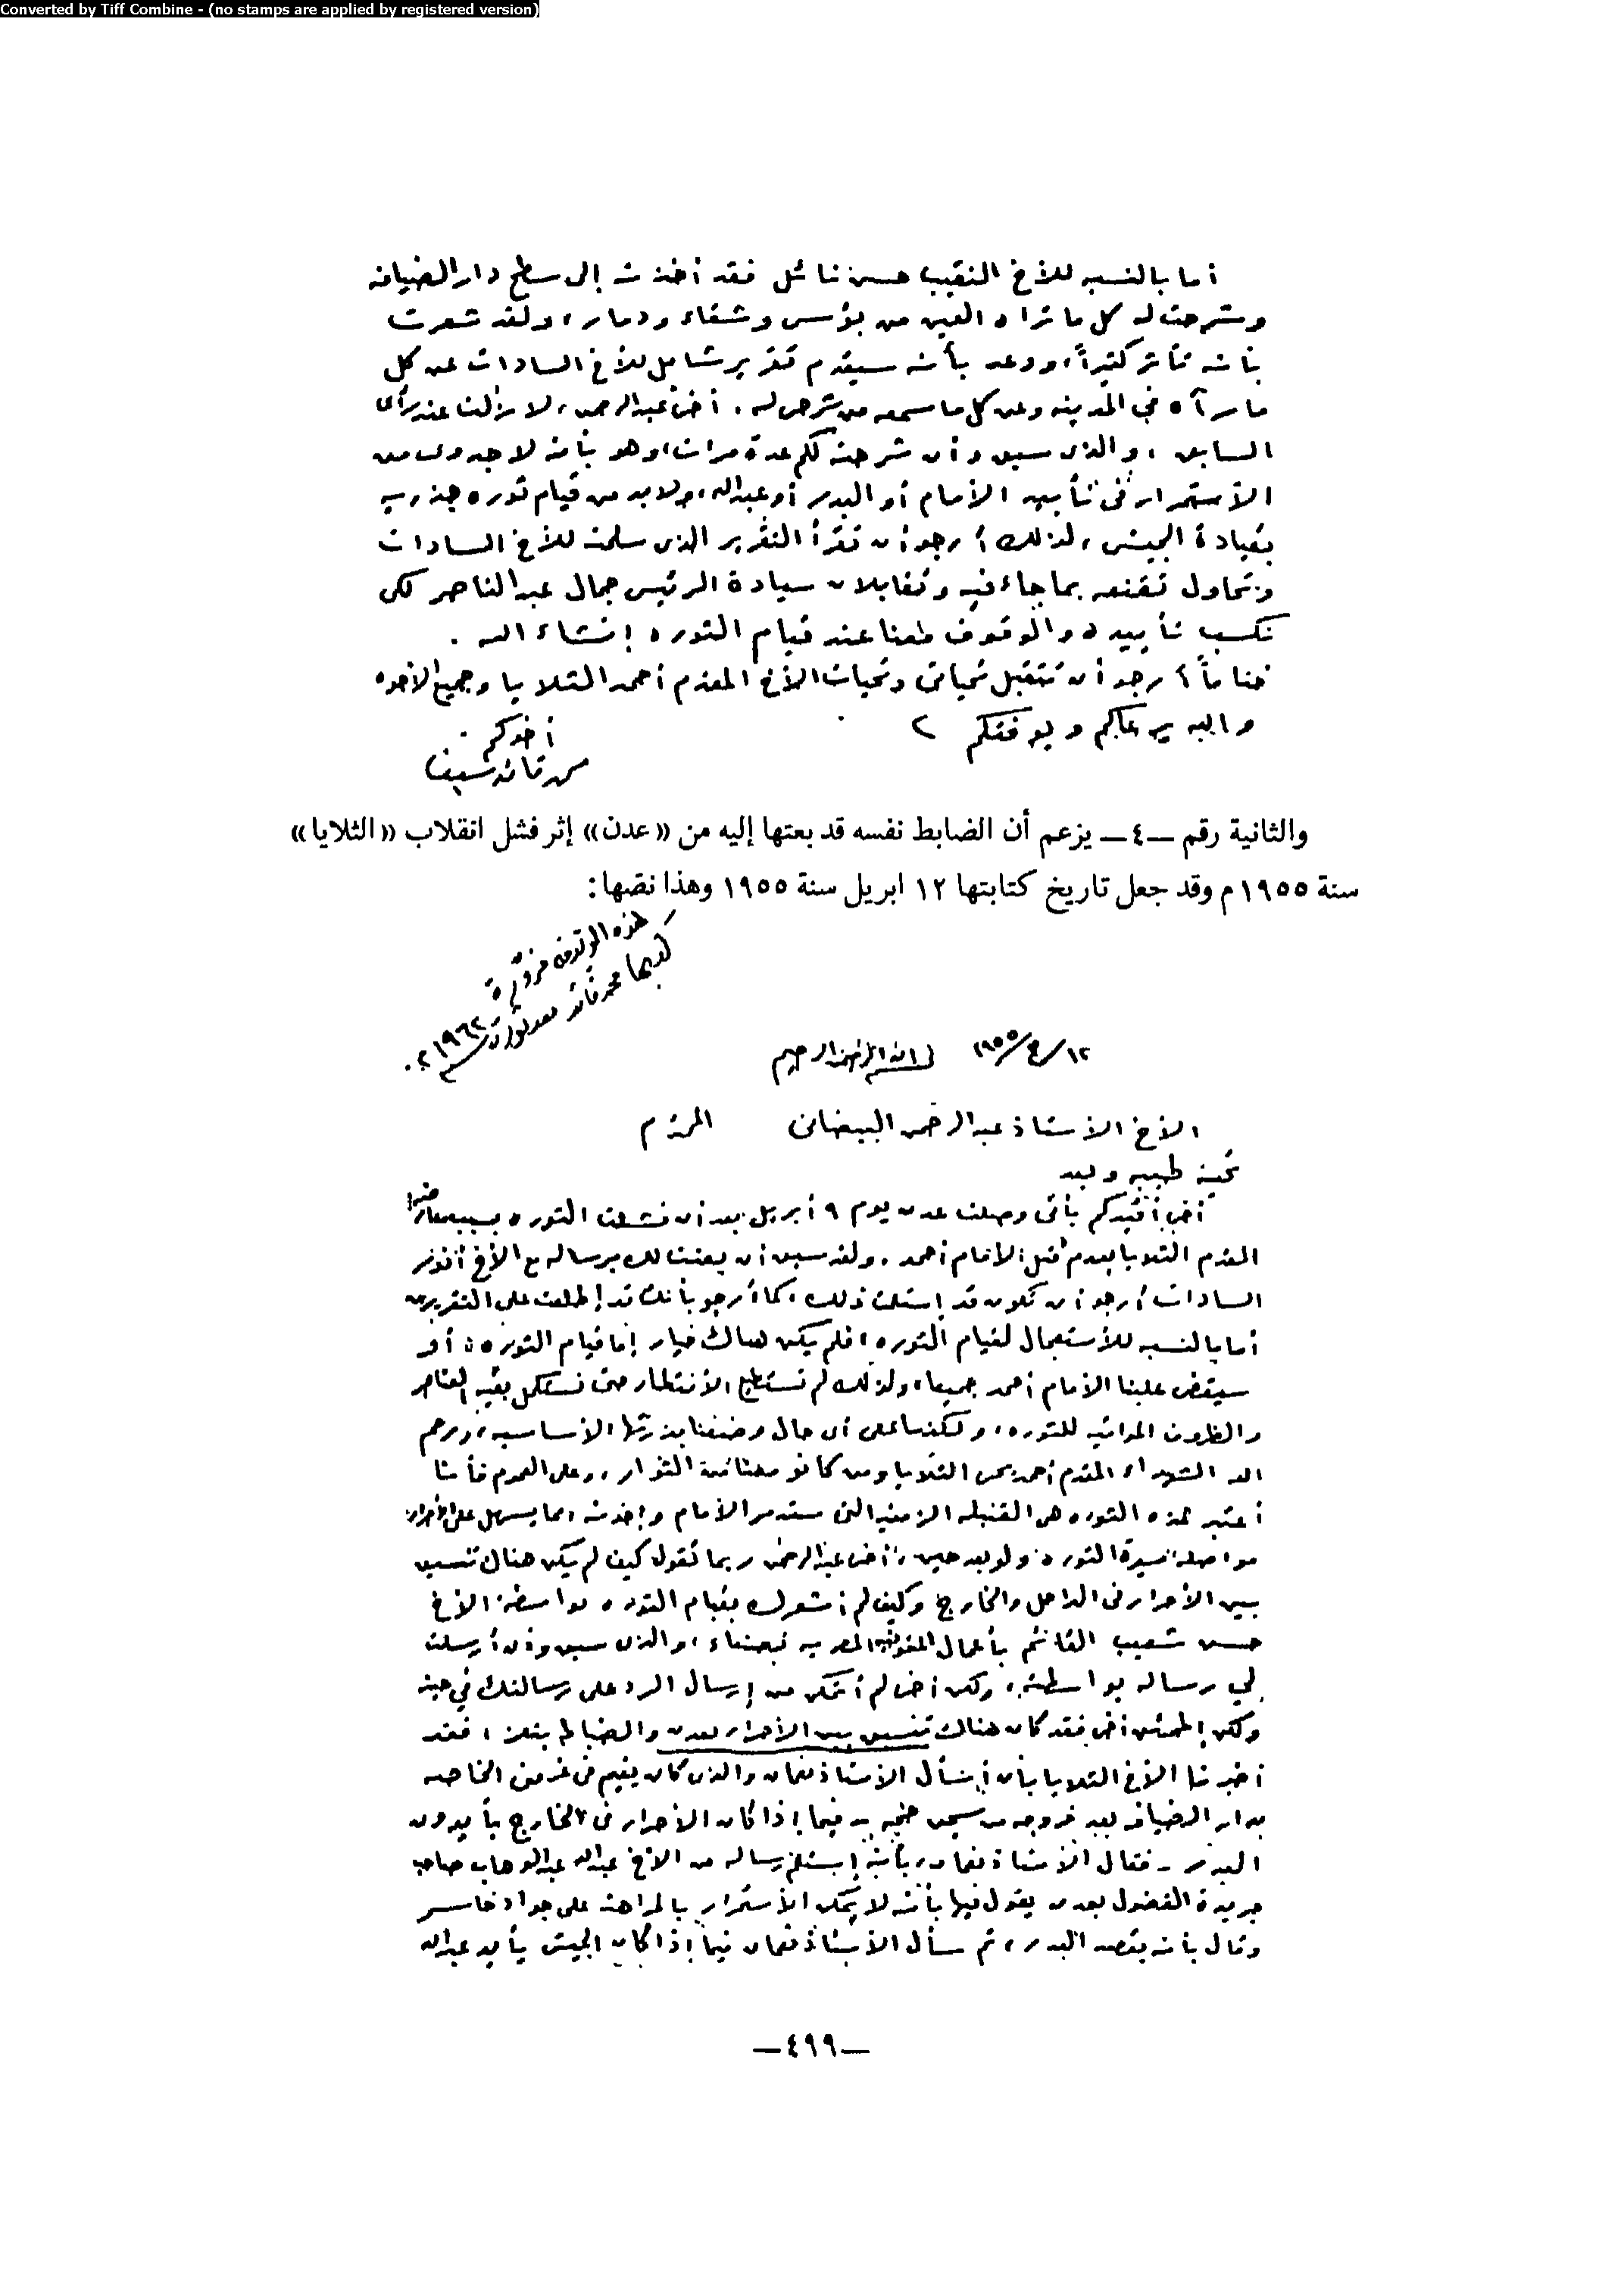 Converted by Tiff Combine - (no stamps are applied by registered version)
أما بالنسبه للأخ النقيب حسن نائل فقد أخذته إلى سطح دار الضيافه
وشرحت له كل ما تراه العين من بؤس وشقاء ودمار، ولقد شعرت
بأنه تأثر كثيراً، ووعد بأنه سيقدم تقرير شامل للأخ السادات عن كل
ما رآه في المدينه وعن كل ما سمعه من شرحي له. أخي عبدالرحمن، لا زلت عند رأي
السابق، والذي سبق وأن شرحته لكم عدة مرات، وهو بأنه لا جدوى من
الأستمرار في تأييد الأمام أو البدر أو عبدالله، ولابد من قيام ثوره جذريه
بقيادة الجيش، لذلك أرجو أن تقرأ التقرير الذي سلمته للأخ السادات
وتحاول تقنعه بما جاء فيه وتقابلان سيادة الرئيس جمال عبدالناصر لكي
نكسب تأييده والوقوف معنا عند قيام الثوره إنشاء الله.
ختاماً أرجو أن تتقبل تحياتي وتحيات الأخ المقدم أحمد الثلايا وجميع الأخوه
والله يرعاكم ويوفقكم
أخوكم
محمد قائد سيف
والثانية رقم —٤— يزعم أن الضابط نفسه قد بعثها إليه من «عدن» إثر فشل انقلاب «الثلايا»
سنة ١٩٥٥م وقد جعل تاريخ كتابتها ١٢ ابريل سنة ١٩٥٥ وهذا نصها:
هذه الوثيقة مزورة
كتبها محمد قائد بعد ثورة
١٩٦٢م.
١٢/٤/١٩٥٥ بسم الله الرحمن الرحيم
الأخ الأستاذ عبدالرحمن البيضاني المحترم
تحية طيبه وبعد
أخي أفيدكم بأني وصلت عدن يوم ٩ أبريل بعد أن فشلت الثوره بسبب معارضة
المقدم الثلايا بعدم قتل الأمام أحمد. ولقد سبق أن بعثت لك برساله مع الأخ أنور
السادات أرجو أن تكون قد إستلمت ذلك، كما أرجو بأنك قد إطلعت على التقريرين
أما بالنسبه للأستعجال لقيام الثوره، فلم يكن هناك خيار إما قيام الثوره، أو
سيقضي علينا الأمام أحمد جميعا، ولذلك لم نستطيع الأنتظار حتى نستكمل بقية العناصر
والظروف المواتيه للثوره، ولكننا على أي حال وضعنا بذرتها الأساسيه، ورحم
الله الشهداء المقدم أحمد يحي الثلايا ومن كانو معنا من الثوار، وعلى العموم فأننا
أعتبر هذه الثوره هي القنبله الزمنيه التي ستدمر الأمام وإخوته، مما يسهل على الأحرار
مواصلة مسيرة الثوره ولو بعد حين، أخي عبدالرحمن ربما تقول كيف لم يكن هناك تنسيق
بين الأحرار في الداخل والخارج وكيف لم أشعرك بقيام الثوره بواسطة الأخ
حسن شعيب القائم بأعمال المفوضية المصريه بصنعاء، والذي سبق وأن أرسلت
لي رساله بواسطته، ولكن أخي لم أتمكن من إرسال الرد على رسالتك في حينه
ولكن إطمئن أخي فقد كان هناك تنسيق بين الأحرار بعدن والضباط بتعز، فقد
أخبرنا الأخ الثلايا بأن أسأل الأستاذ نعمان والذي كان يقيم في غرفتي الخاصه
بدار الضيافه بعد خروجه من سجن حجه - فيما إذا كان الأحرار في الخارج يأيدون
البدر - فقال الأستاذ نعمان، بأنه إستلم رساله من الأخ عبدالله عبدالوهاب صاحب
جريدة الفضول بعدن يقول فيها بأنه لا يمكن الأستمرار بالمراهنه على جواد خاسر
وقال بأنه يقصد البدر، ثم سأل الأستاذ نعمان فيما إذا كان الجيش يأيد عبدالله
—٤٩٩—